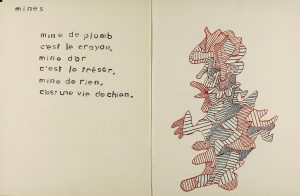 mines
mine de plomb
c'est le crayon,
mine d'or
c'est le trésor,
mine de rien,
c'est une vie de chien.